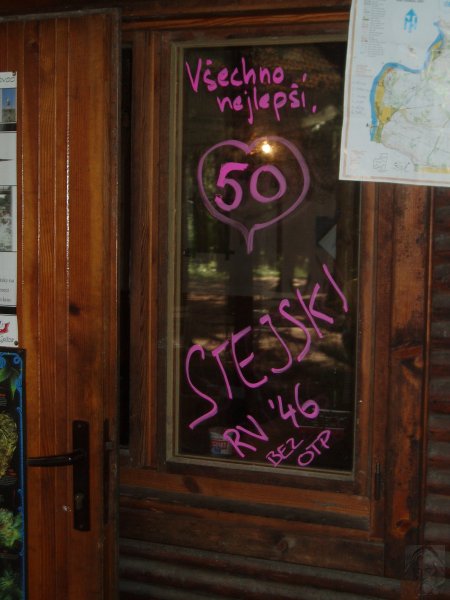 Všechno
nejlepší.
50
STEJSKY
RV '46
BEZ
OTP